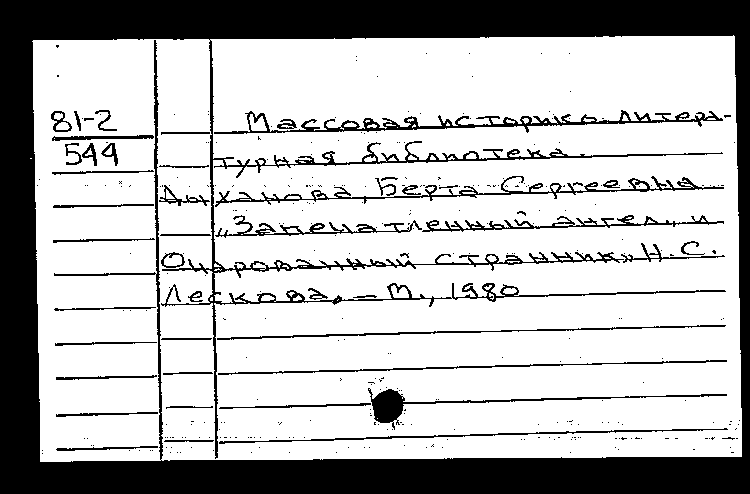 81-2 Массовая историко-литера-
544 турная библиотека.
Дыханова, Берта Сергеевна
„Запечатленный ангел„ и
Очарованный странник„ Н.С.
Лескова. – М., 1980